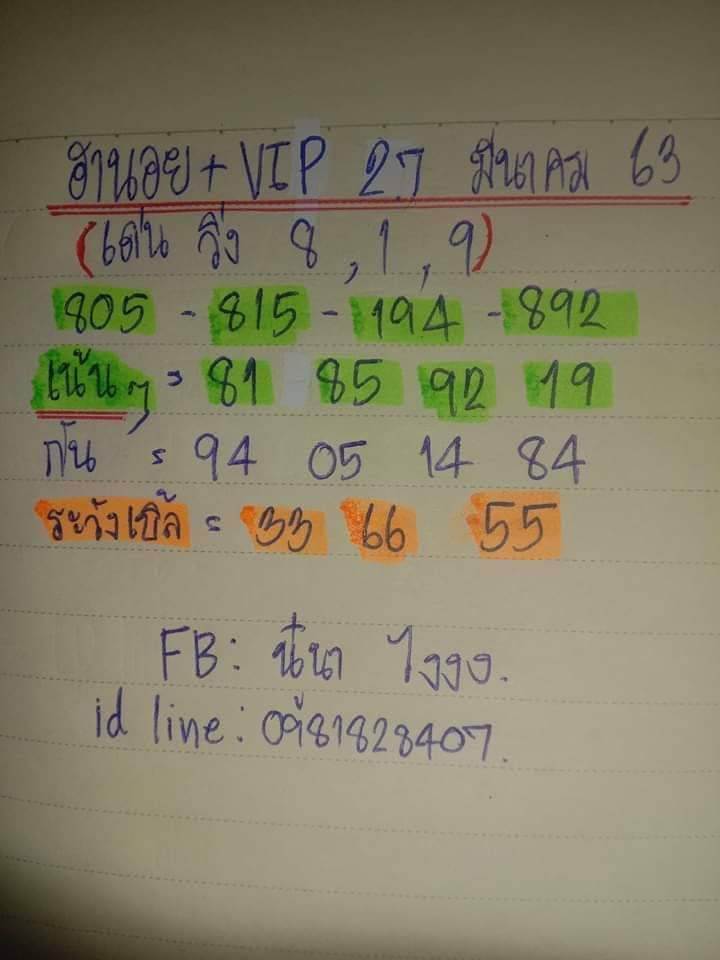 ฮานอย + VIP 27 มีนาคม 63
(เด่น วิ่ง 8, 1, 9)
805 - 815 - 194 - 892
เน้นๆ = 81 85 92 19
กัน = 94 05 14 84
ระวังเบิ้ล = 33 66 55
FB: นีน่า ไงงง.
id line: 0981828407.